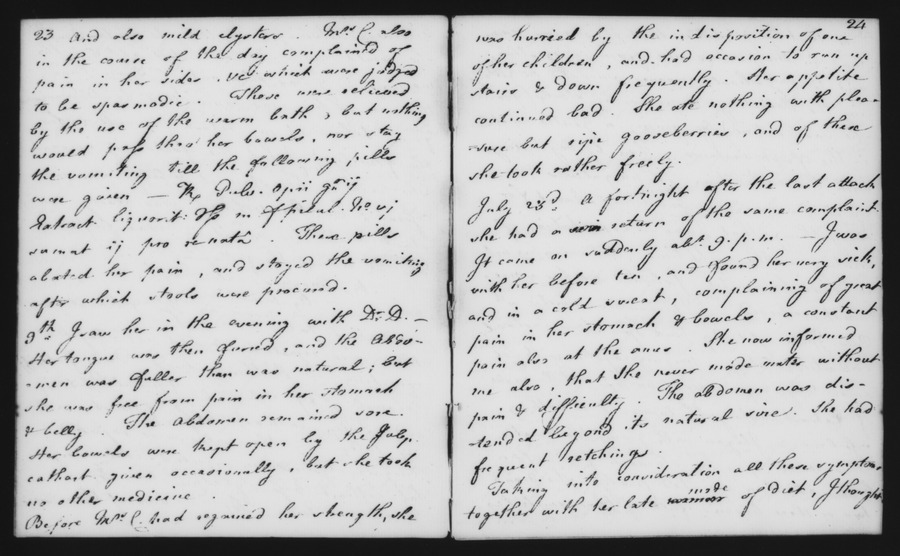 23 And also mild clysters. Mrs C. also
in the course of the day complained of
pain in her sides, which were judged
to be spasmodic. These were relieved
by the use of the warm bath; but nothing
would pass thro' her bowels, nor stay
the vomiting till the following pills
were given — Rx Pulv. Opii grs ij
Extract. liquorit: ss m. f pilul. No vj
sumat ij pro re natâ. These pills
abated her pain, and stayed the vomiting
after which stools were procured.
9th I saw her in the evening with Dr. D. —
Her tongue was then furred, and the abdo-
-men was fuller than was natural; but
she was free from pain in her stomach
& belly. The abdomen remained sore.
Her bowels were kept open by the Julep.
cathart. given occasionally, but she took
no other medicine.
Before Mrs C. had regained her strength, she
24
was hurried by the indisposition of one
of her children, and had occasion to run up
stairs & down frequently. Her appetite
continued bad. She ate nothing with plea-
-sure but ripe gooseberries, and of these
she took rather freely.
July 23d. A fortnight after the last attack
she had a return of the same complaint.
It came on suddenly abt. 9. p.m. — I was
with her before ten, and found her very sick,
and in a cold sweat, complaining of great
pain in her stomach & bowels, a constant
pain also at the anus. She now informed
me also, that she never made water without
pain & difficulty. The abdomen was dis-
-tended beyond its natural size. She had
frequent retchings.
Taking into consideration all these symptoms
mode
together with her late of diet, I thought